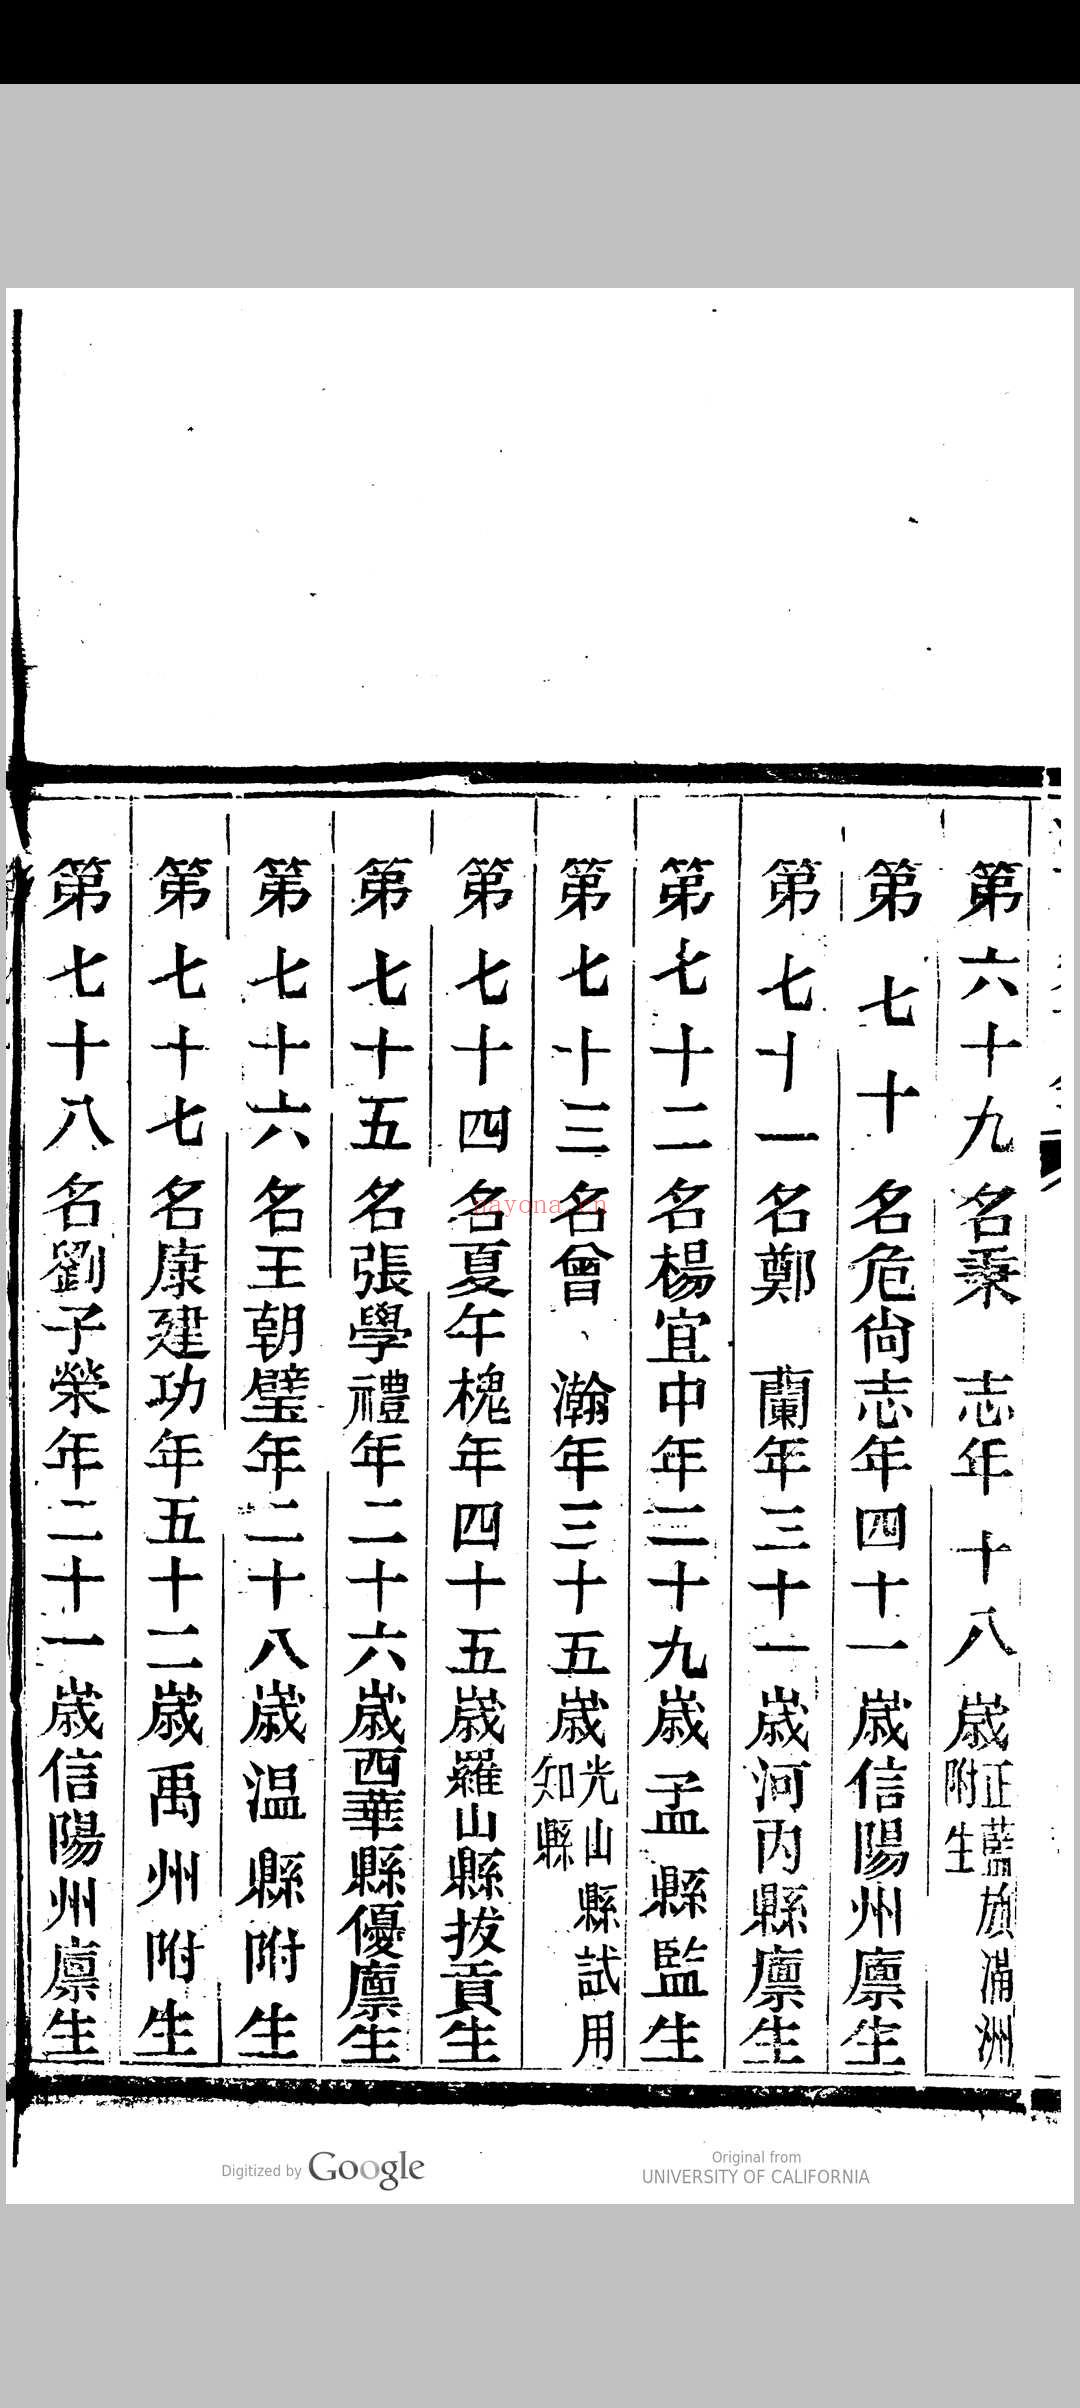 第六十九名秉　志年十八歲正藍旗滿洲附生
第七十名危尙志年四十一歲信陽州廩生
第七十一名鄭　蘭年三十一歲河內縣廩生
第七十二名楊宜中年三十九歲孟縣監生
第七十三名曾　瀚年三十五歲光山縣試用知縣
第七十四名夏午槐年四十五歲羅山縣拔貢生
第七十五名張學禮年二十六歲西華縣優廩生
第七十六名王朝璧年二十八歲温縣附生
第七十七名康建功年五十二歲禹州附生
第七十八名劉子榮年二十一歲信陽州廩生
nayona.cn
Digitized by Google
Original from
UNIVERSITY OF CALIFORNIA